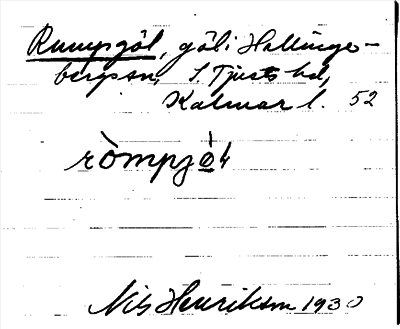 Rumpgöl, göl i Hallinge-
bergs sn, S. Tjusts hd,
Kalmar l. 52
ròmpjò̲l
Nils Henriksson 1930